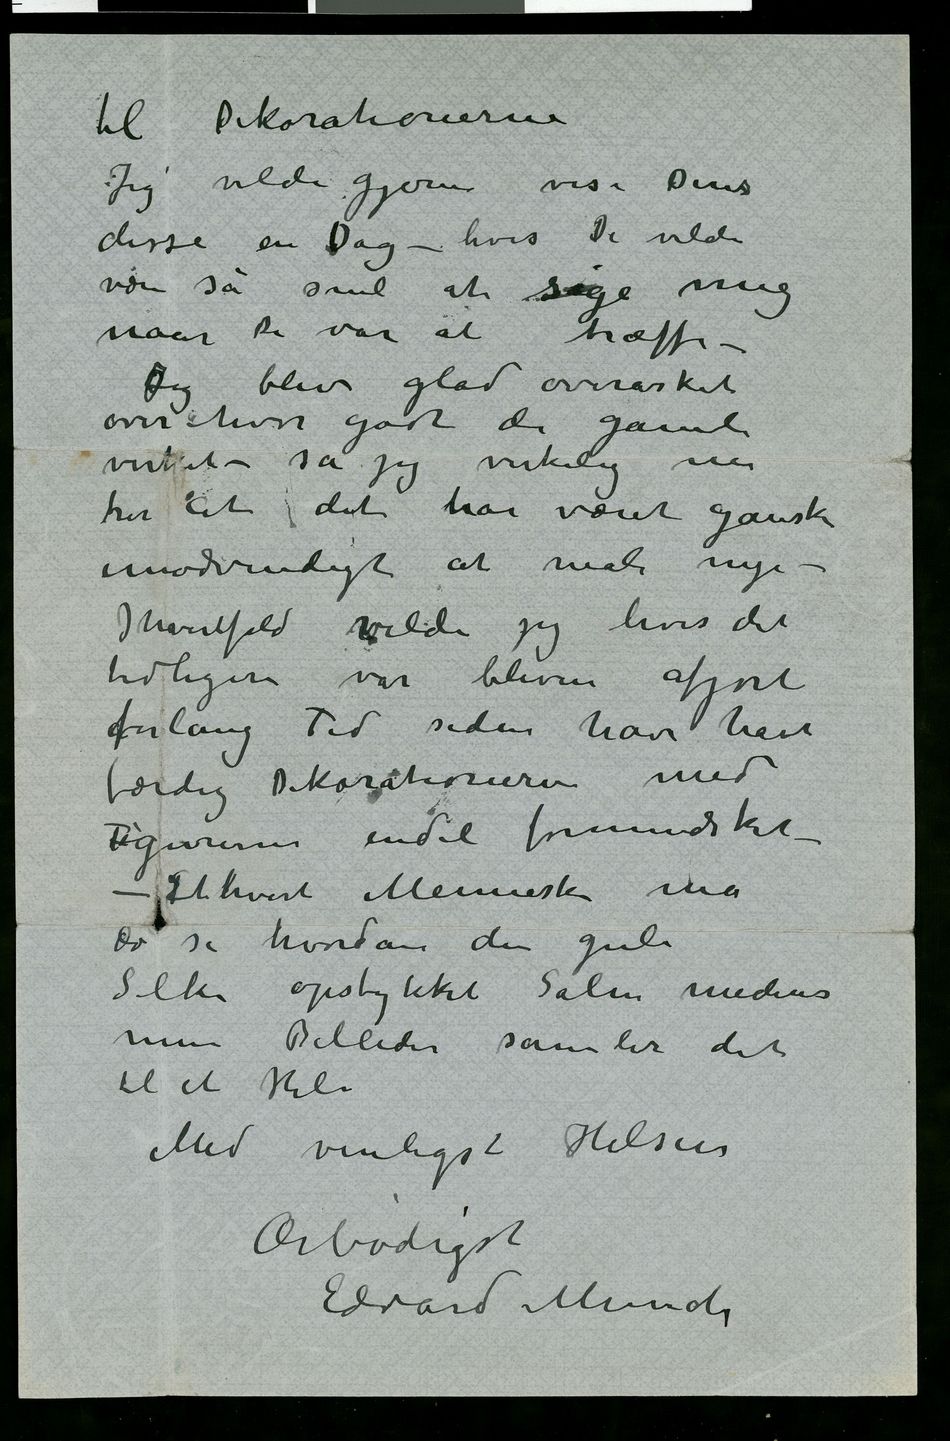 til Dekorationerne
Jeg vilde gjerne vise Dem
disse en Dag – hvis De vilde
være så snil at sige mig
naar De var at træffe –
Jeg blev glad overasket
over hvor godt de gamle
virket – så jeg virkelig nu
tror at det har været ganske
unødvendigt at male nye –
Ihvertfald vilde jeg hvis det
tidligere var bleven afgjort
for lang Tid siden have havt
færdig Dekorationerne med
Figurerne endel formindsket –
– Ethvert Menneske må
do se hvordan den gule
Silke opstykket Salen medens
mine Billeder samler det
til et Hele
Med venligst Hilsen
Ærbødigst
Edvard Munch